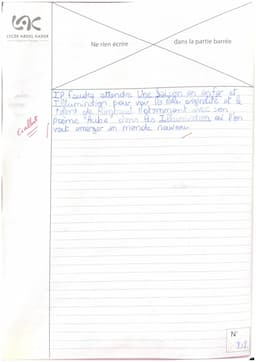 LYCÉE ABDEL KADER
Ne rien écrire
dans la partie barrée
Il faudra attendre Une Saison en enfer et
Illumination pour voir la
talent de Rimbaud notamment avec son
poème "Aube" dans les Illumination où l'on
voit emerger un monde nouveau.
N°